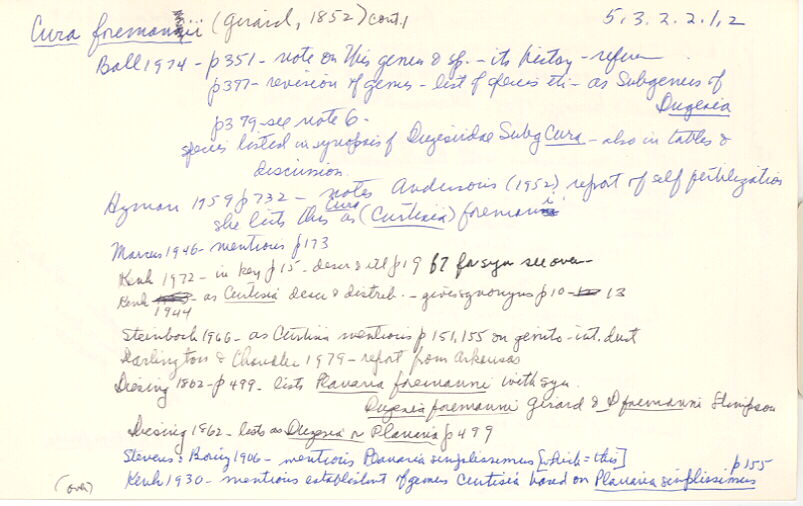 Cura foremanii (Girard, 1852) cont. 5.3.2.2.1.2
Ball 1974 - p351 - note on this genus & sp. - its history -
p377 - revision of genus - list of species etc - as Subgenus of
Dugesia
p379 - see note 6.
species listed in synopsis of Dugesiidae Subg Cura - also in tables &
discussion.
Hyman 1959 p732 - notes Anderson's (1952) report of self fertilization
she lists this as Cura (Curtisia) foremanii
Marcus 1946 - mentions p173
Kenk 1972 - in key p15 - descr & ill p19 67 for syn see over
Kenk 1944 - as Curtisia descr & distrib. - gives synonyms p10 - 13
Steinbock 1966 - as Curtisia mentions p 151, 155 on genito-int. duct
Darlington & Chandler 1979 - report from Arkansas
Diesing 1862 - p499 - lists Planaria foremanni with syn.
Dugesia foremanni Girard & D foremanni Stimpson
Diesing 1862 - lists as Dugesia or Planaria p499
Stevens & Boring 1906 - mentions Planaria simplissimus [which = this]
p155
(over) Kenk 1930 - mentions establishmt of genus Curtisia based on Planaria simplissimus